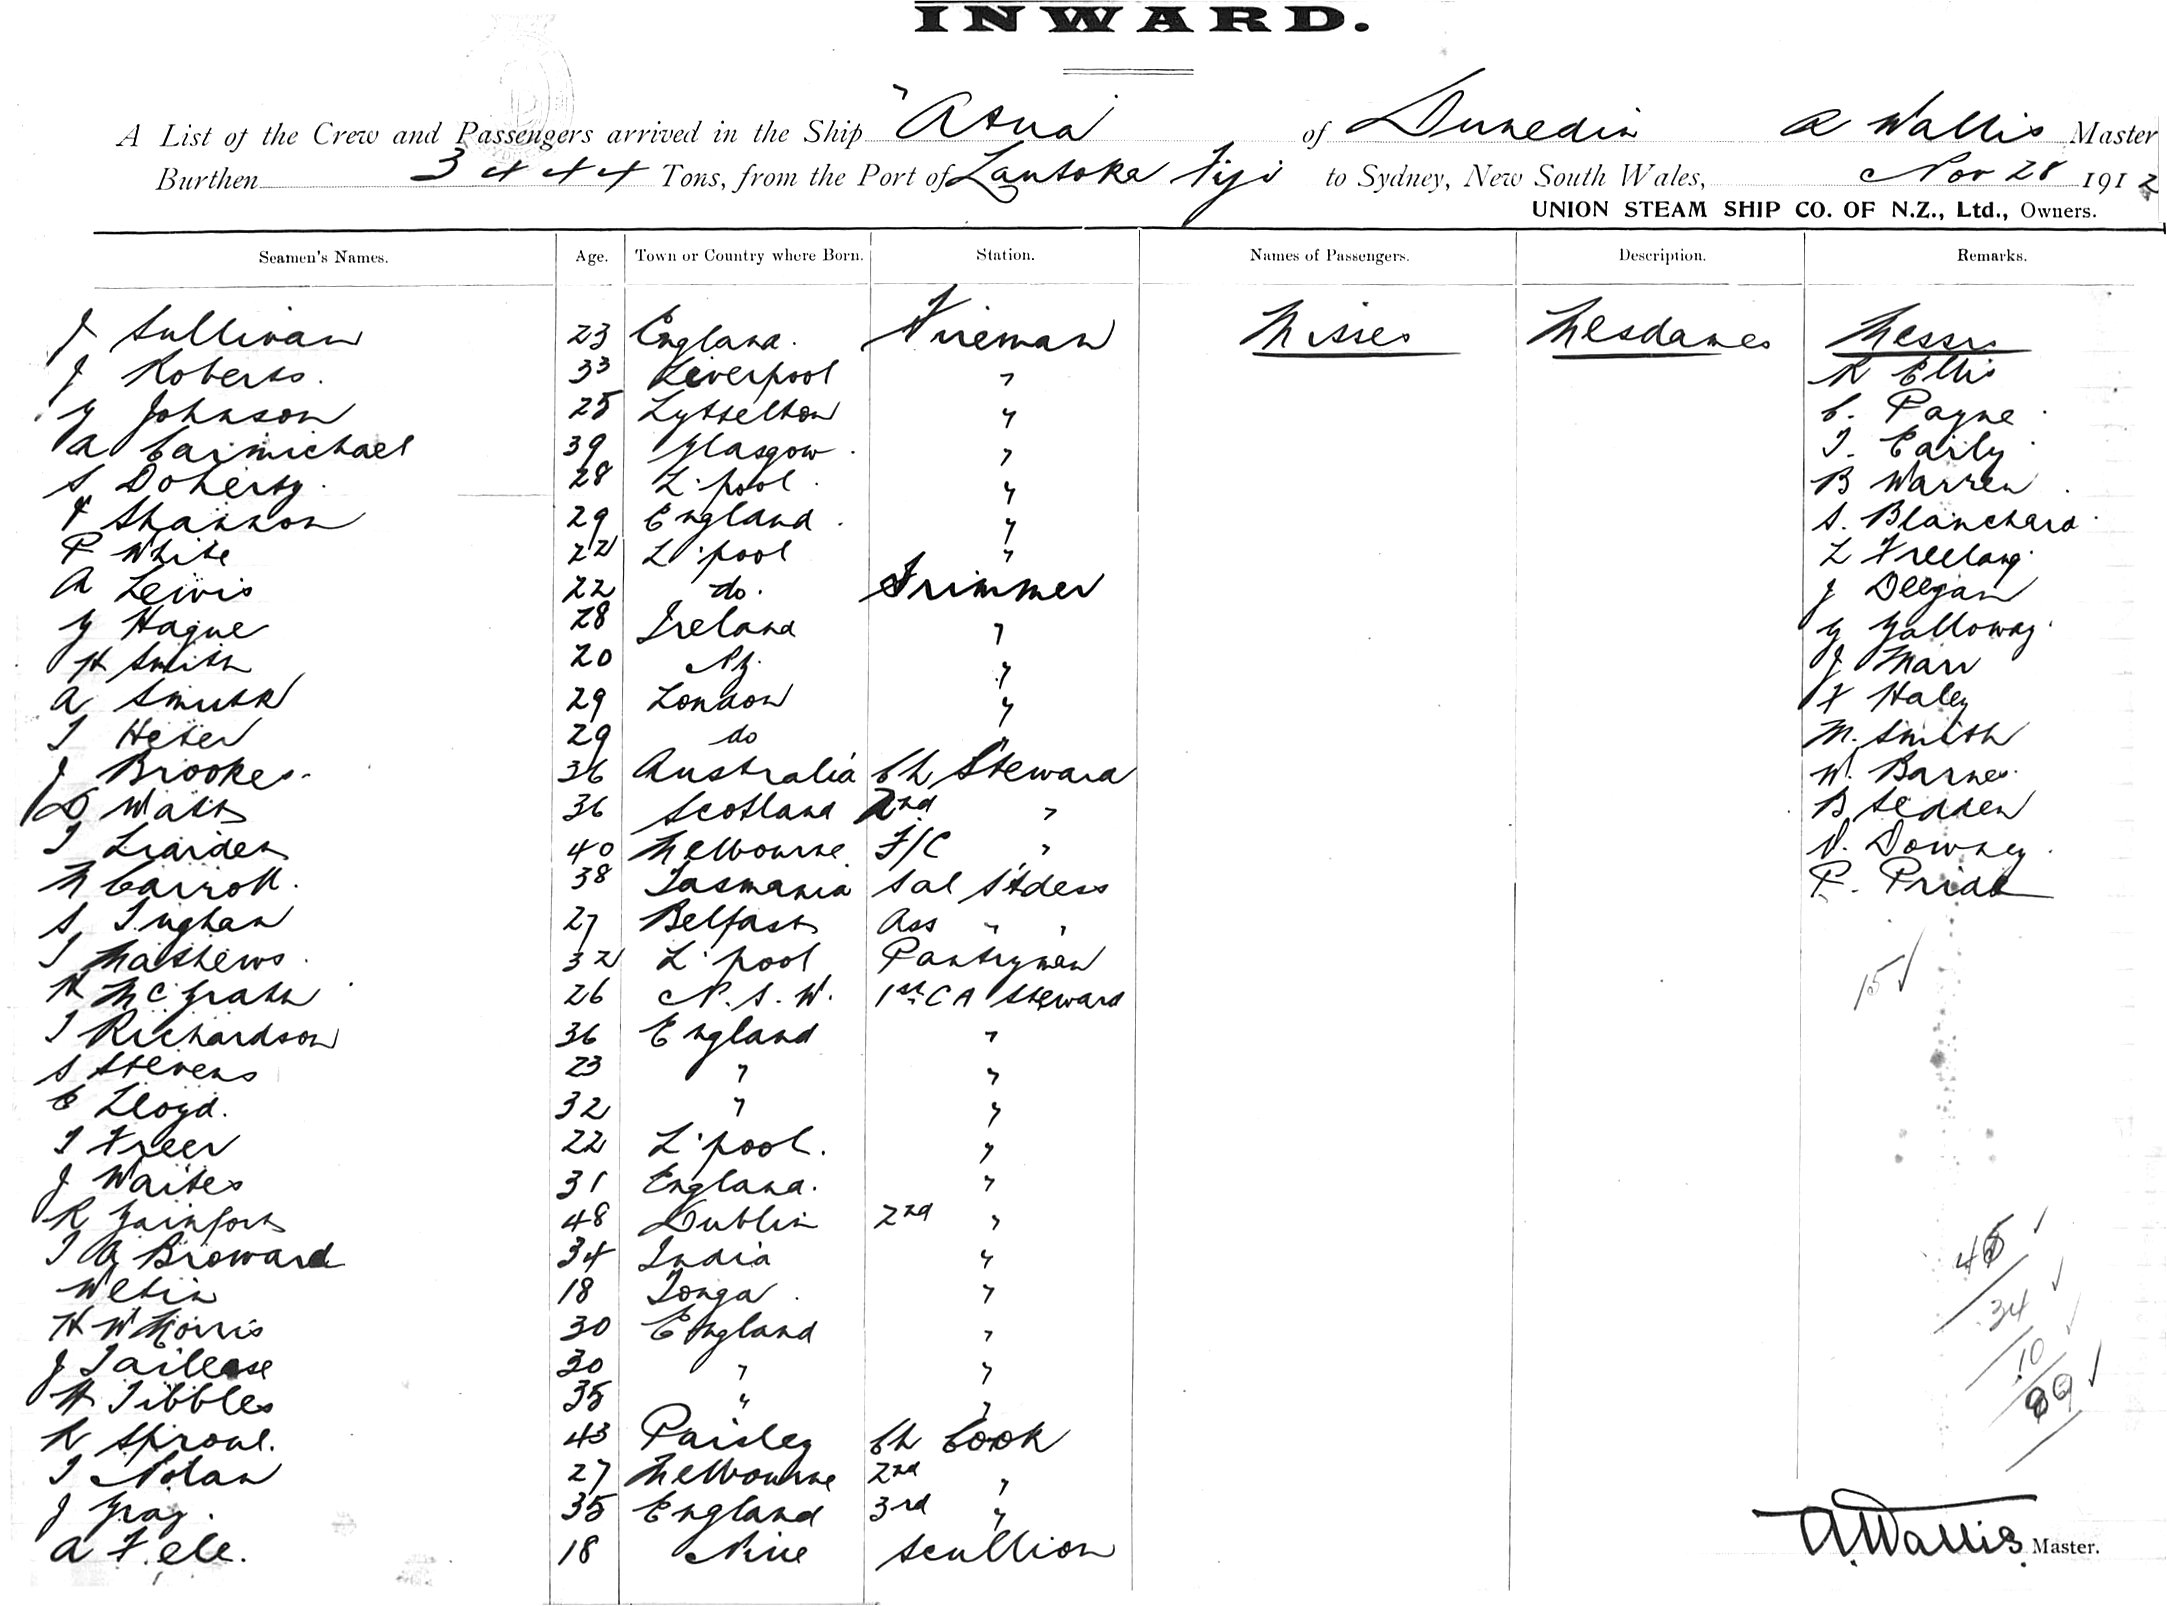 INWARD.
A List of the Crew and Passengers arrived in the Ship "Atua" of Dunedin A Wallis Master
Burthen 3444 Tons, from the Port of Lautoka Fiji to Sydney, New South Wales, Nov 28 1912
UNION STEAM SHIP CO. OF N.Z., Ltd., Owners.
Seamen's Names. Age. Town or Country where Born. Station. Names of Passengers. Description. Remarks.
J Sullivan 23 England. Fireman Misses Mesdames Messrs
J Roberts. 33 Liverpool " R Ellis
G Johnson 25 Lyttelton " C. Payne
A Carmichael 39 Glasgow " T. Early
S Doherty. 28 L'pool " B Warren
F Shannon 29 England " S. Blanchard
P White 22 L'pool " L Freelang
A Lewis 22 do. Trimmer J Deegan
G Hague 28 Ireland " G Galloway
H Smith 20 NZ. " J Marr
A 29 London " F Haley
T 29 do " M. Smith
J Brookes. 36 Australia Ch Steward W. Barnes
D Watt 36 Scotland 2nd " B Sedden
T 40 Melbourne F/C " D. Downey
M Carroll. 38 Tasmania Sal Stdess P.
S Inghan 27 Belfast Ass " "
T Mathews. 32 L'pool Pantryman
H McGrath 26 N.S.W. 1st CA Steward 15
T Richardson 36 England "
S Stevens 23 " "
E Lloyd. 32 " "
T Freer 22 L'pool. "
J Waites 31 England. "
R 48 Dublin 2nd "
T A Broward 34 India "
18 Tonga "
H W Morris 30 England " 34
J 30 " " 10
H Tibbles 35 " " 89
R Sproul. 43 Paisley Ch Cook
T Nolan 27 Melbourne 2nd "
J Gray. 35 England 3rd "
A 18 Niue Scullion
A. Wallis. Master.